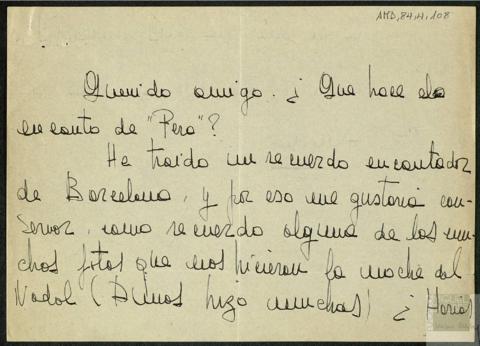 AMD, 84, H, 108
Querido amigo. ¿Que hace el
encanto de "Pera"?
He traido un recuerdo encantador
de Barcelona, y por eso me gustaria con-
servar, como recuerdo alguna de las mu-
chas fotos que nos hicieron la noche del
Nadal ( hizo muchas) ¿ Harias